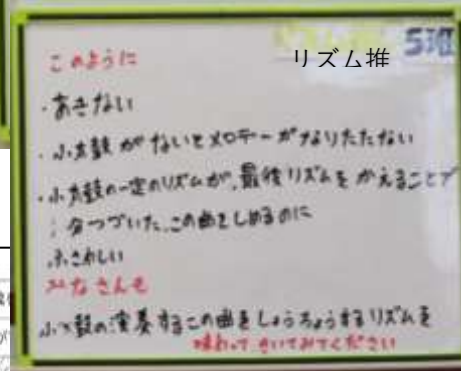 リズム推 5班
このように
・あきない
・小太鼓がないとメロデーがなりたたない
・小太鼓の一定のリズムが、最後リズムをかえることで
つづいた、この曲をしめるのに
ふさわしい
みなさんも
小太鼓の演奏するこの曲をしょうちょうするリズムを
味わってきいてみてください